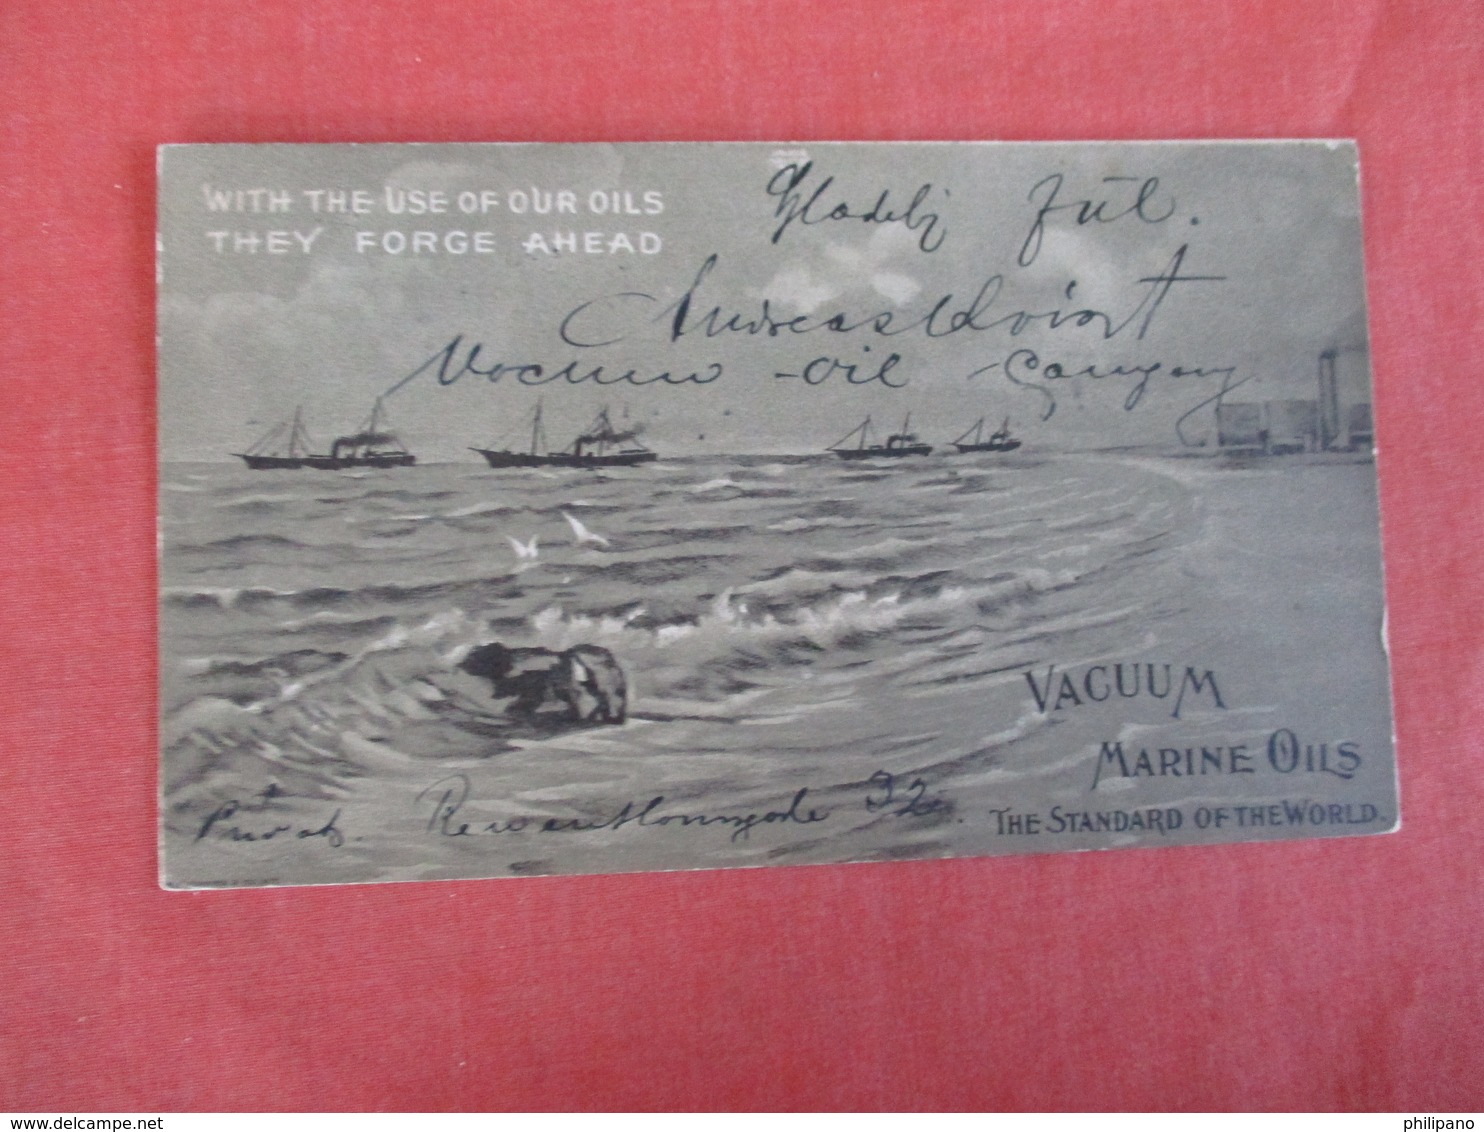 WITH THE USE OF OUR OILS
THEY FORGE AHEAD
Jul.
Andreas
Vacuum - Oil - Company
VACUUM
MARINE OILS
THE STANDARD OF THE WORLD.
Privat. 32.
www.delcampe.net
philipano